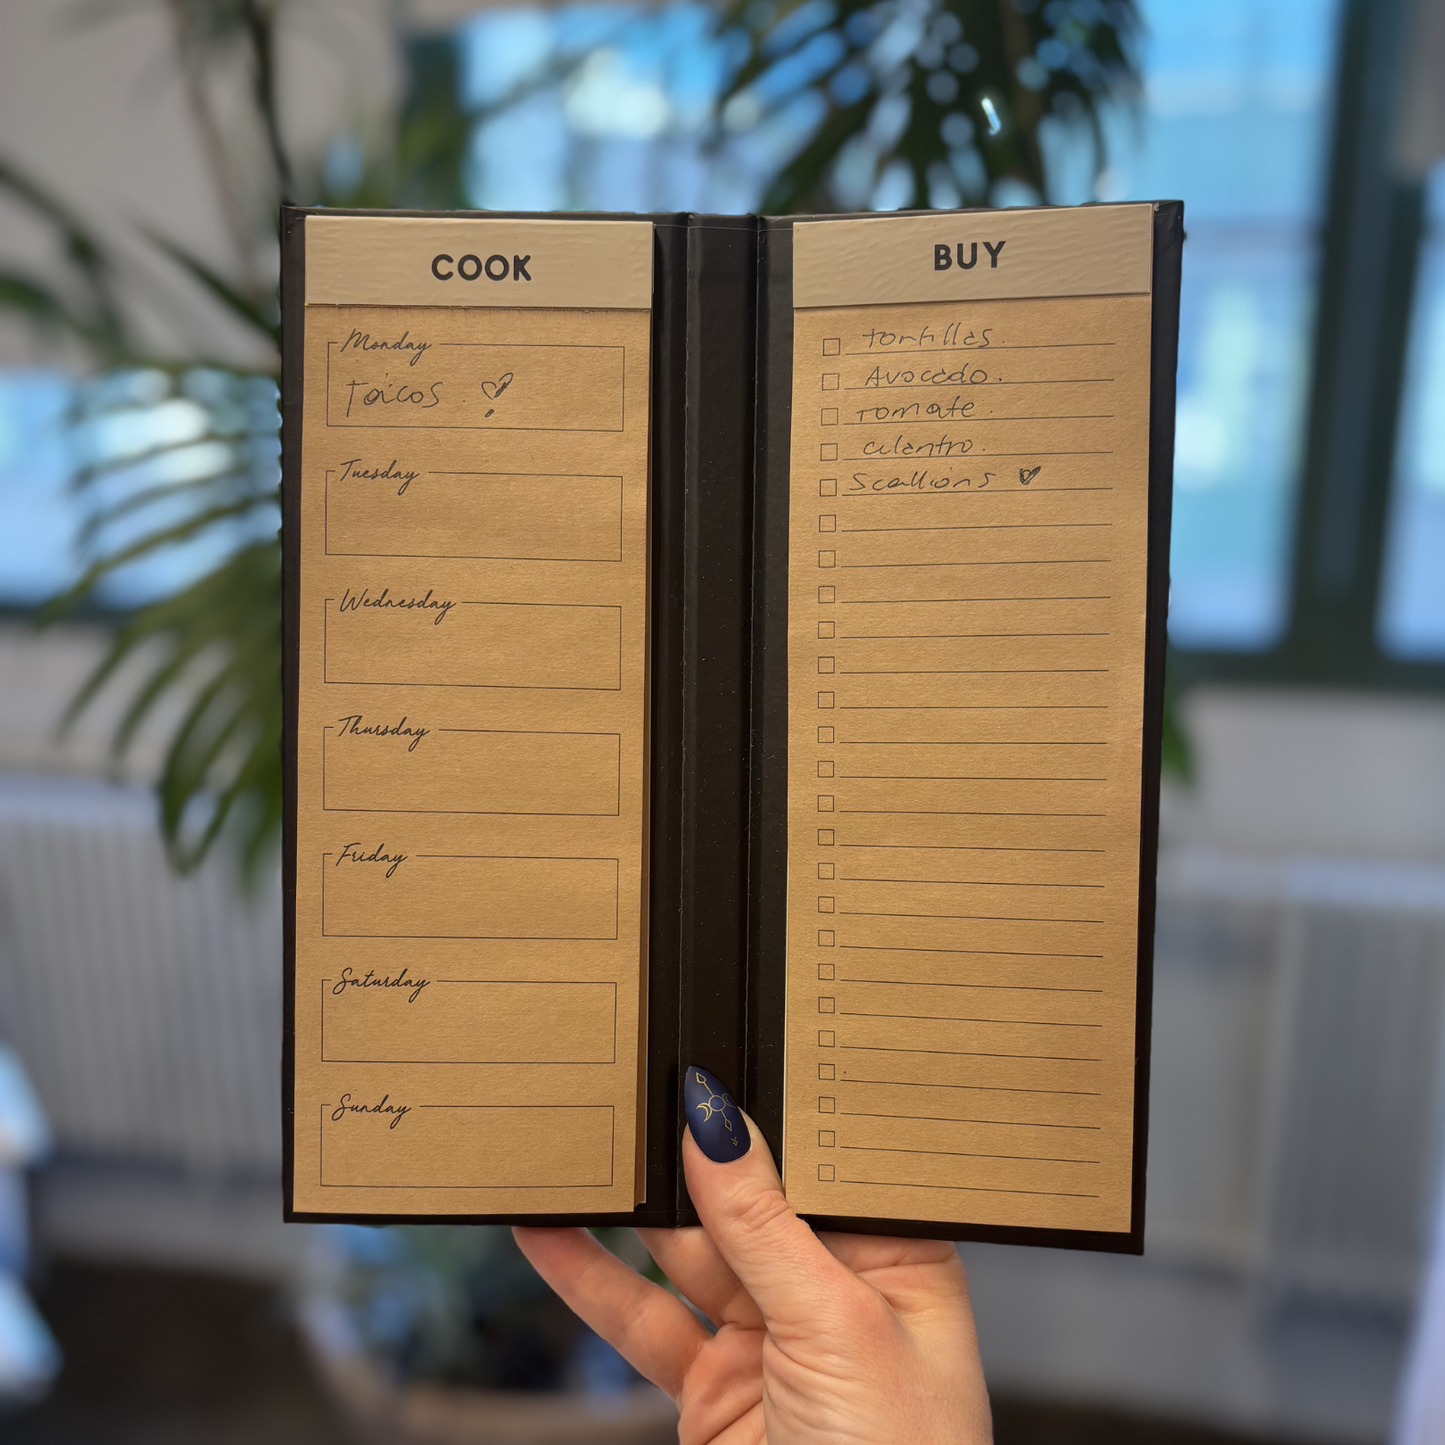 COOK
Monday
Tacos.
Tuesday
Wednesday
Thursday
Friday
Saturday
Sunday
BUY
tortillas.
Avocado.
Tomate.
cilantro.
Scallions